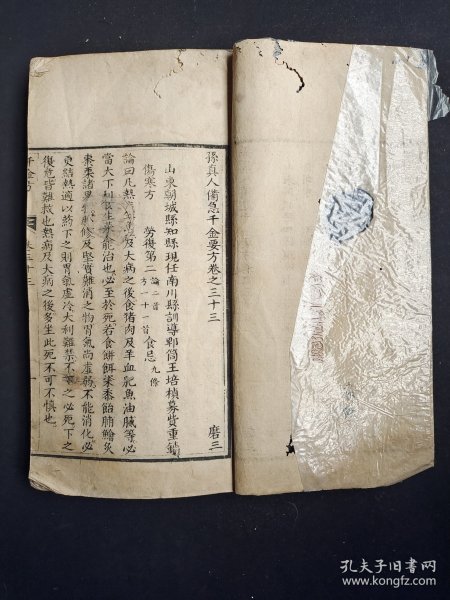 孫真人備急千金要方卷之三十三 磨三
山東朝城縣知縣現任南川縣訓導郫筒王培槙募貲重鐫
傷寒方
勞復第二 論二首 方二十一首 食忌九條
論曰凡熱病新瘥及大病之後食猪肉及羊血肥魚油膩等必
當大下利醫所不能治也必至於死若食餅餌粢黍飴脯鱠炙
棗栗諸果物脯修及堅實難消之物胃氣尚虛弱不能消化必
更結熱適以藥下之則胃氣虛冷大利難禁不下之必死下之
復危皆難救也熱病及大病之後多坐此死不可不慎也
千金方 卷三十三
孔夫子旧书网
www.kongfz.com